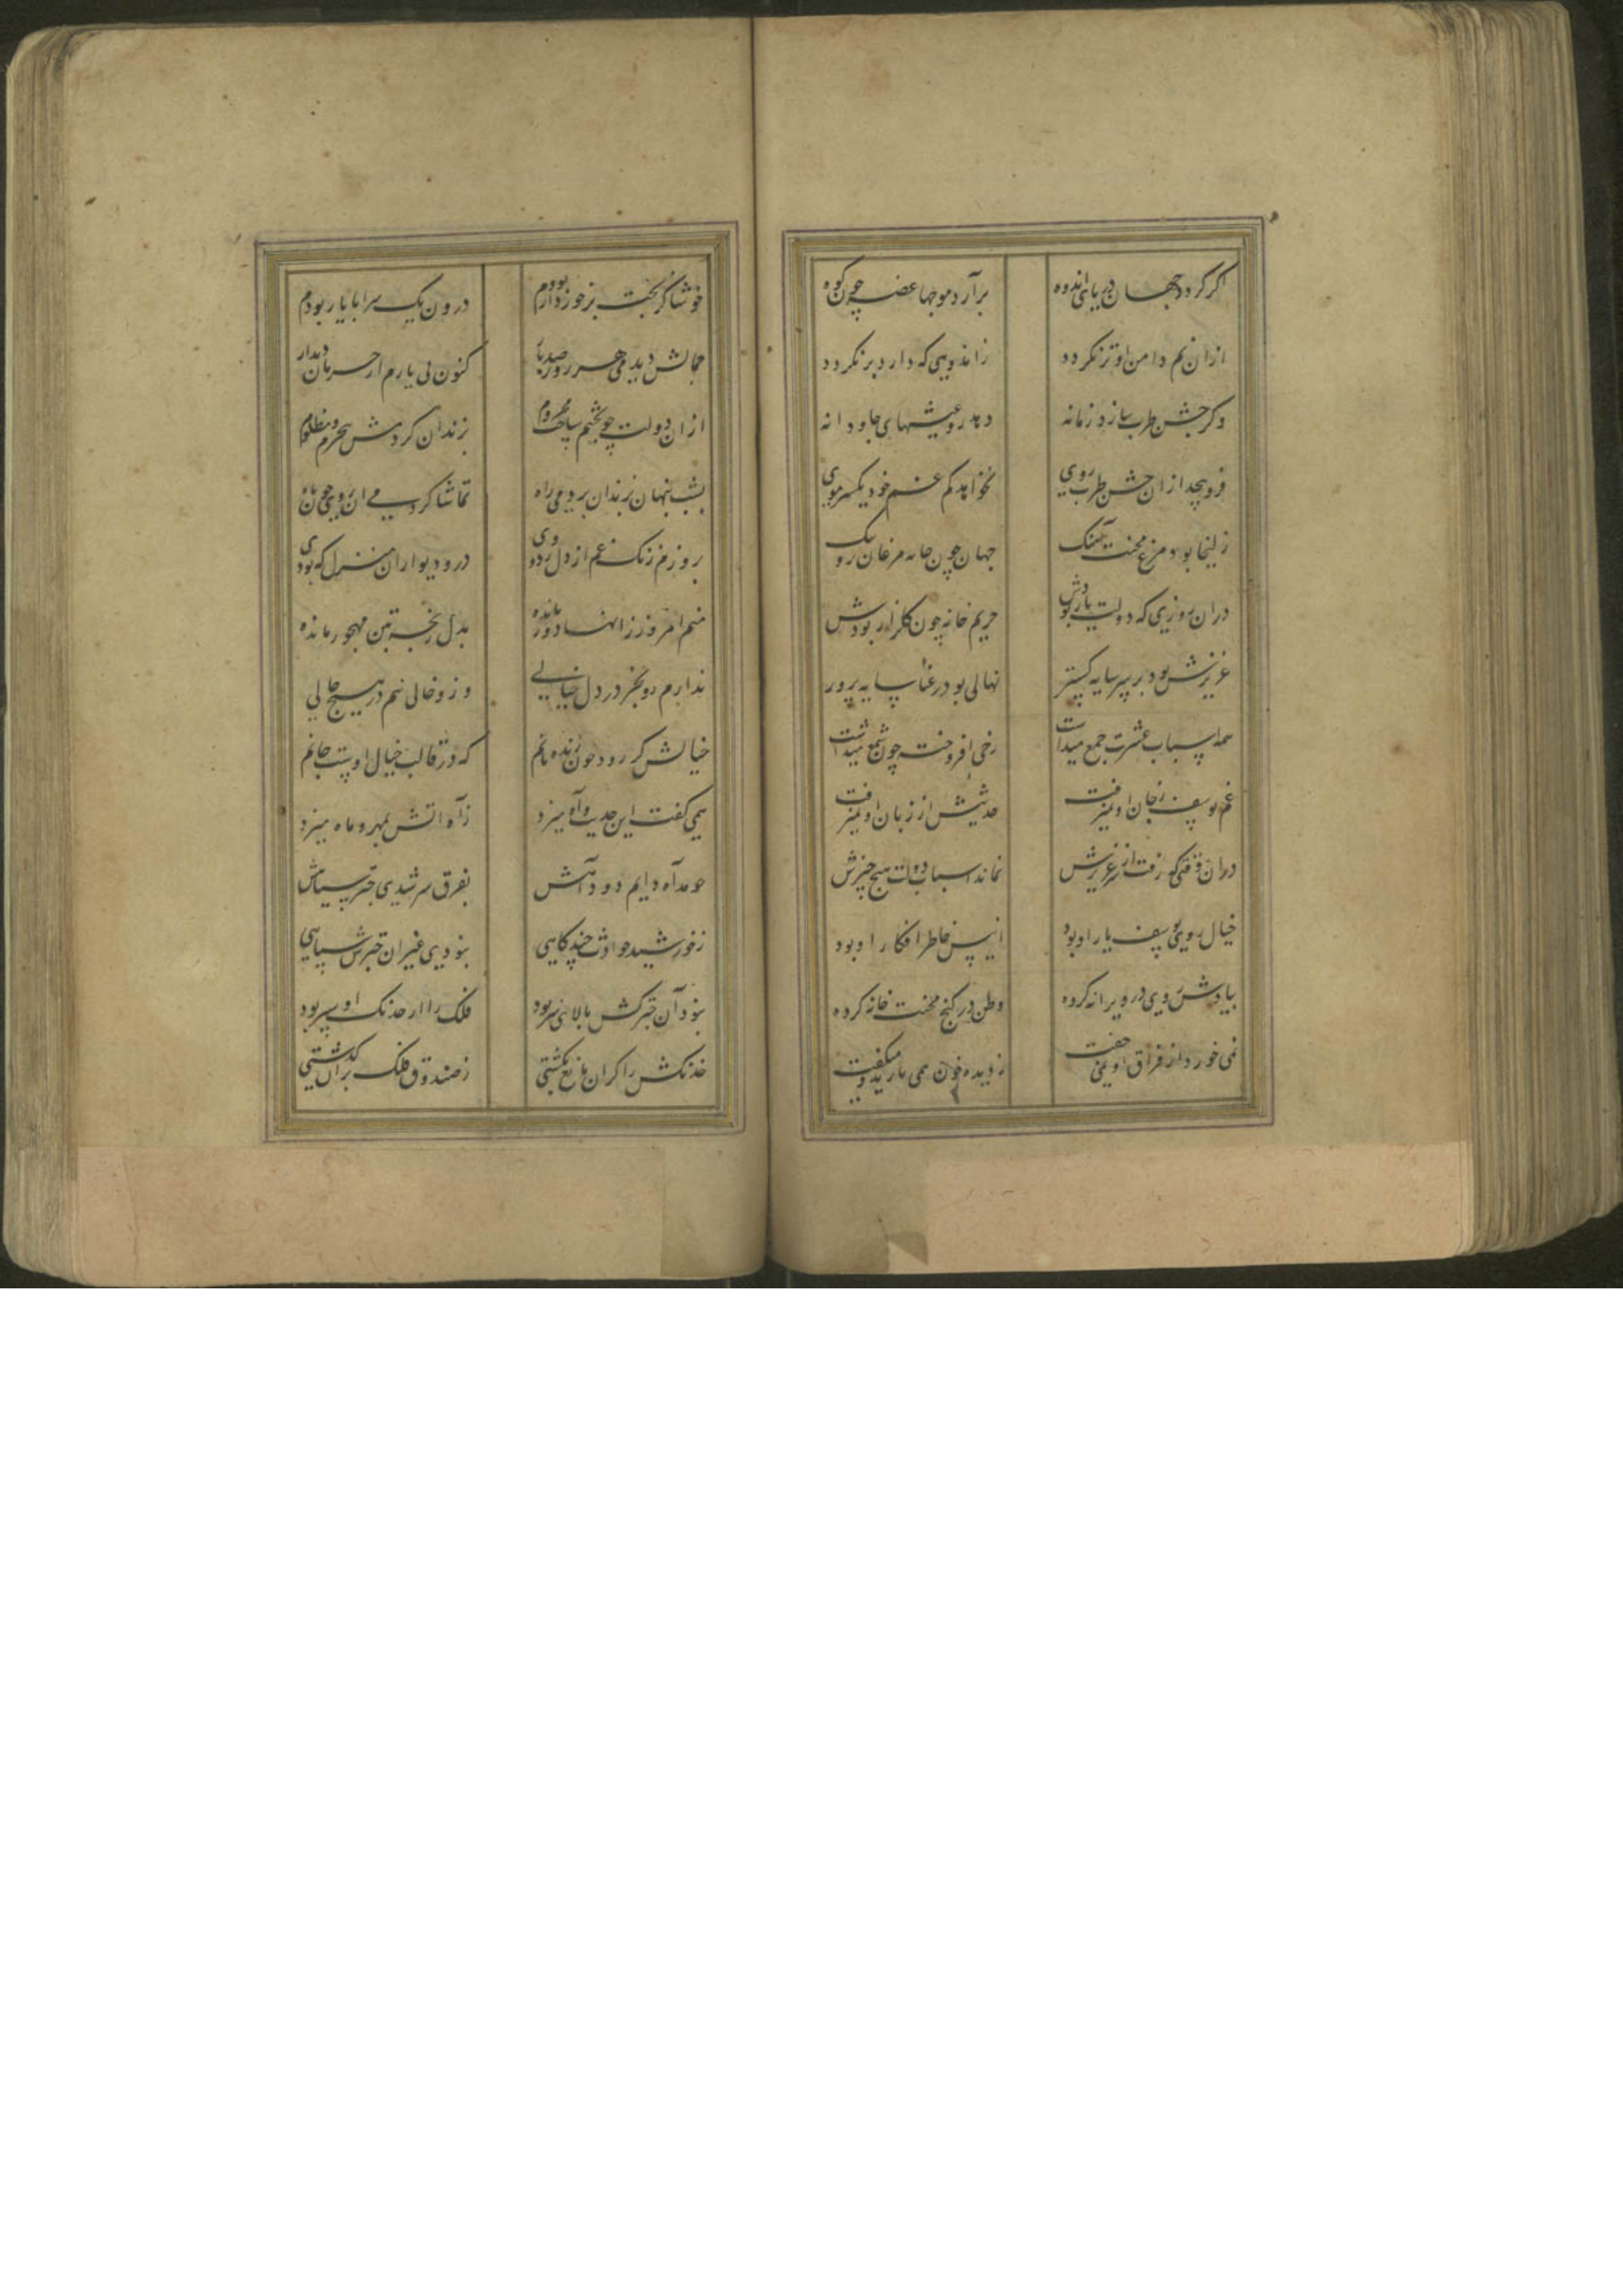 اگر گردد جهان دریای اندوه برآرد موجها غصه چون کوه
ازان نم دامن او تر نگردد ز اندوهی که دارد برنگردد
وگر جشن طرب سازد زمانه دهد رو عیشهای جاودانه
فروپیچد ازان جشن طرب روی نخواهد کم غم خود یکسر موی
زلیخا بود مرغ محنت آهنگ جهان چون خانه مرغان برو تنگ
دران روزی که دولت یار بودش حریم خانه چون گلزار بودش
عزیزش بود بر سر سایه گستر نهالی بود رعنا سایه پرور
همه اسباب عشرت جمع میداشت رخی افروخته چون شمع میداشت
غم یوسف ز جان او نمیرفت حدیثش از زبان او نمیرفت
دران وقتی که رفت از سر عزیزش نماند اسباب دولت هیچ چیزش
خیال روی یوسف یار او بود انیس خاطر افکار او بود
بیادش روی در ویرانه کرده وطن در کنج محنت خانه کرده
نمی خورد از فراق او نمی خفت ز دیده خون همی بارید و میگفت
خوشا کز بخت برخوردار بودم درون یک سرا با یار بودم
جمالش دیدمی هر روز صد بار کنون بی یارم از حرمان دیدار
ازان دولت چو بختم ساخت محروم بزندان کردمش بیجرم و مظلوم
بشب پنهان بزندان بردمی راه تماشا کردمی آن روی چون ماه
بروزم زنگ غم از دل زدودی در و دیوار آن منزل که بودی
منم امروز زانها دور مانده بدل رنجه بتن مهجور مانده
ندارم زو بجز در دل خیالی وزو خالی نیم در هیچ حالی
خیالش گر رود چون زنده مانم که در قالب خیال اوست جانم
همی گفت این حدیث و آه میزد ز آه آتش بمهر و ماه میزد
چو مد آه دایم دود آهش بفرق سر شدی چتر سیاهش
ز خورشید حوادث چند گاهی نبودی غیر آن چترش پناهی
نبود آن چترکش بالای سر بود فلک را از خدنگ او سپر بود
خدنگش را گر آن مانع نگشتی ز صندوق فلک پران گذشتی